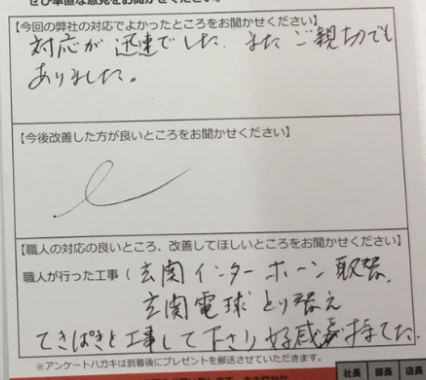 ぜひ率直な意見をお聞かせください。
【今回の弊社の対応でよかったところをお聞かせください】
対応が迅速でした。またご親切でも
ありました。
【今後改善した方が良いところをお聞かせください】
【職人の対応の良いところ、改善してほしいところをお聞かせください】
職人が行った工事（玄関インターホーン取替
玄関電球とり替え
てきぱきと工事して下さり好感が持てた。
※アンケートハガキは到着後にプレゼントを郵送させていただきます。
社長 部長 店長